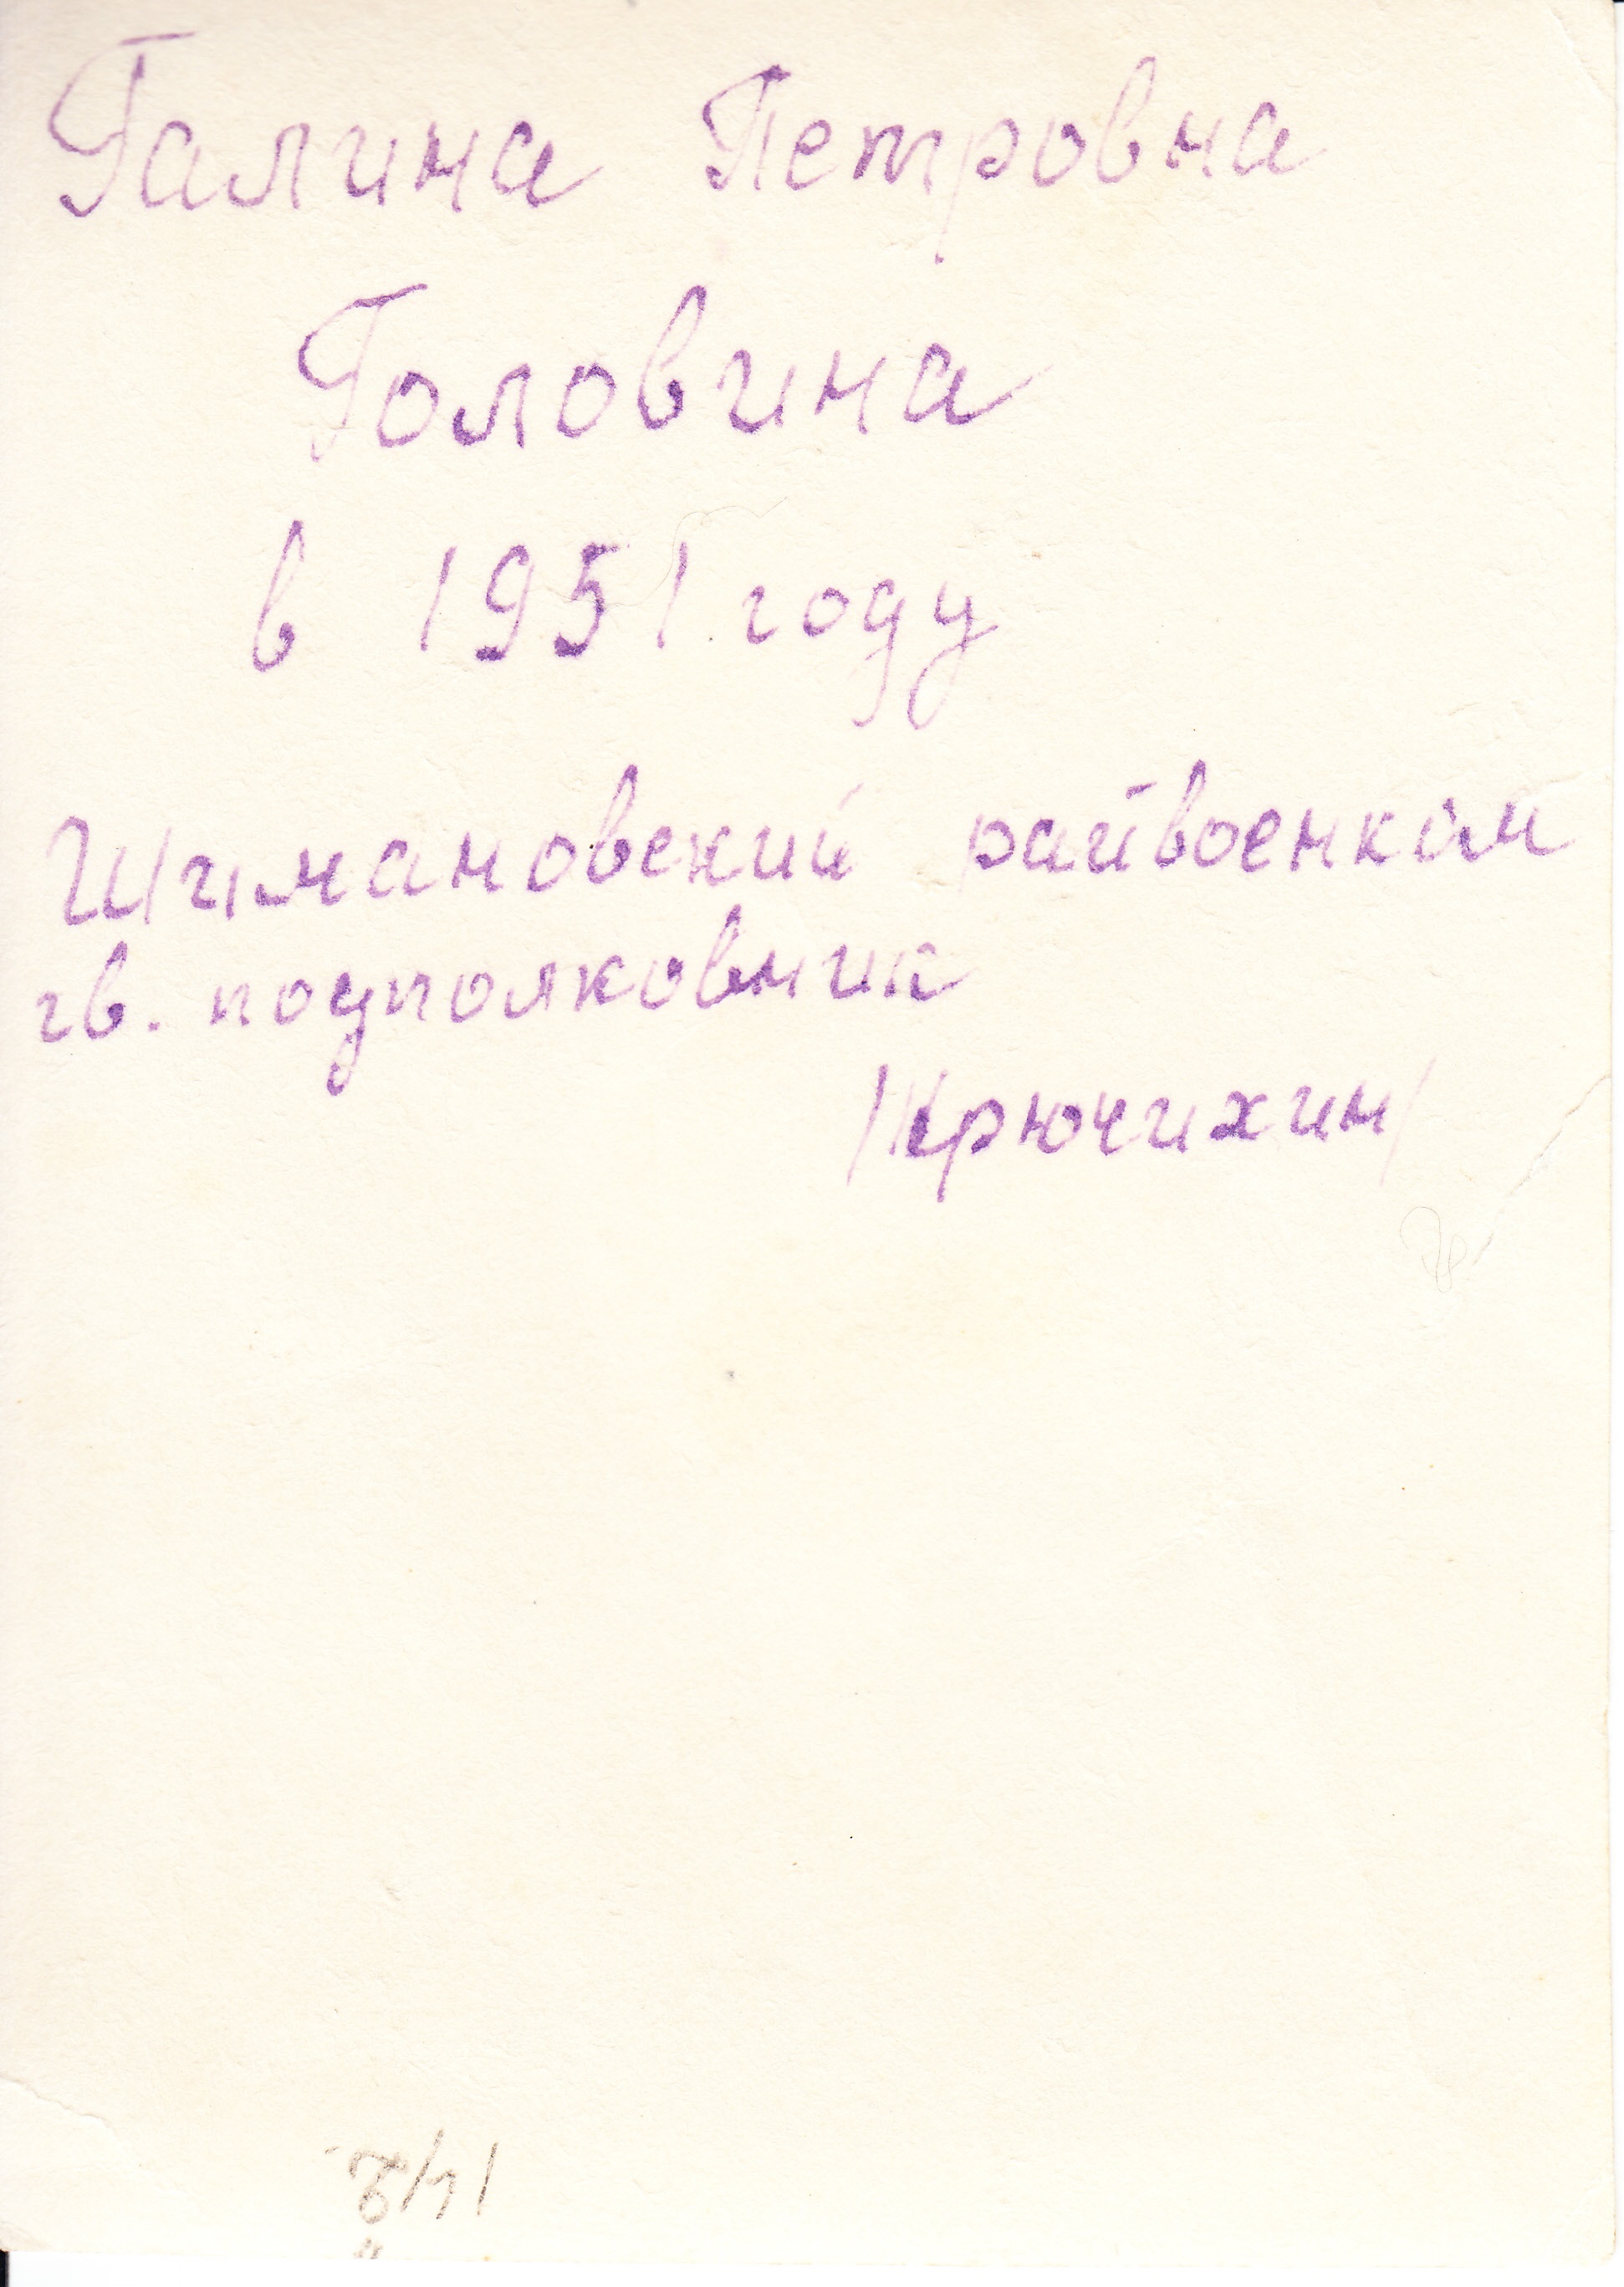 Галина Петровна
Головина
в 1951 году
Шимановский райвоенком
гв. подполковник
/Крючихин/